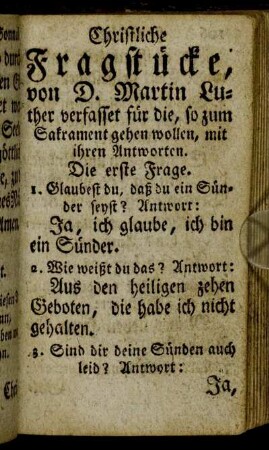 Christliche
Fragstücke,
von D. Martin Lu-
ther verfasset für die, so zum
Sakrament gehen wollen, mit
ihren Antworten.
Die erste Frage.
1. Glaubest du, daß du ein Sün-
der seyst? Antwort:
Ja, ich glaube, ich bin
ein Sünder.
2. Wie weißt du das? Antwort:
Aus den heiligen zehen
Geboten, die habe ich nicht
gehalten.
3. Sind dir deine Sünden auch
leid? Antwort:
Ja,